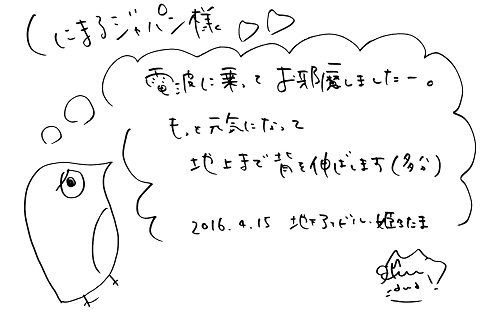 にまるジャパン様
電波に乗って お邪魔しましたー。
もっと元気になって
地上まで 背を伸ばします(多分)
2016.4.15 地下アイドル・姫乃たま